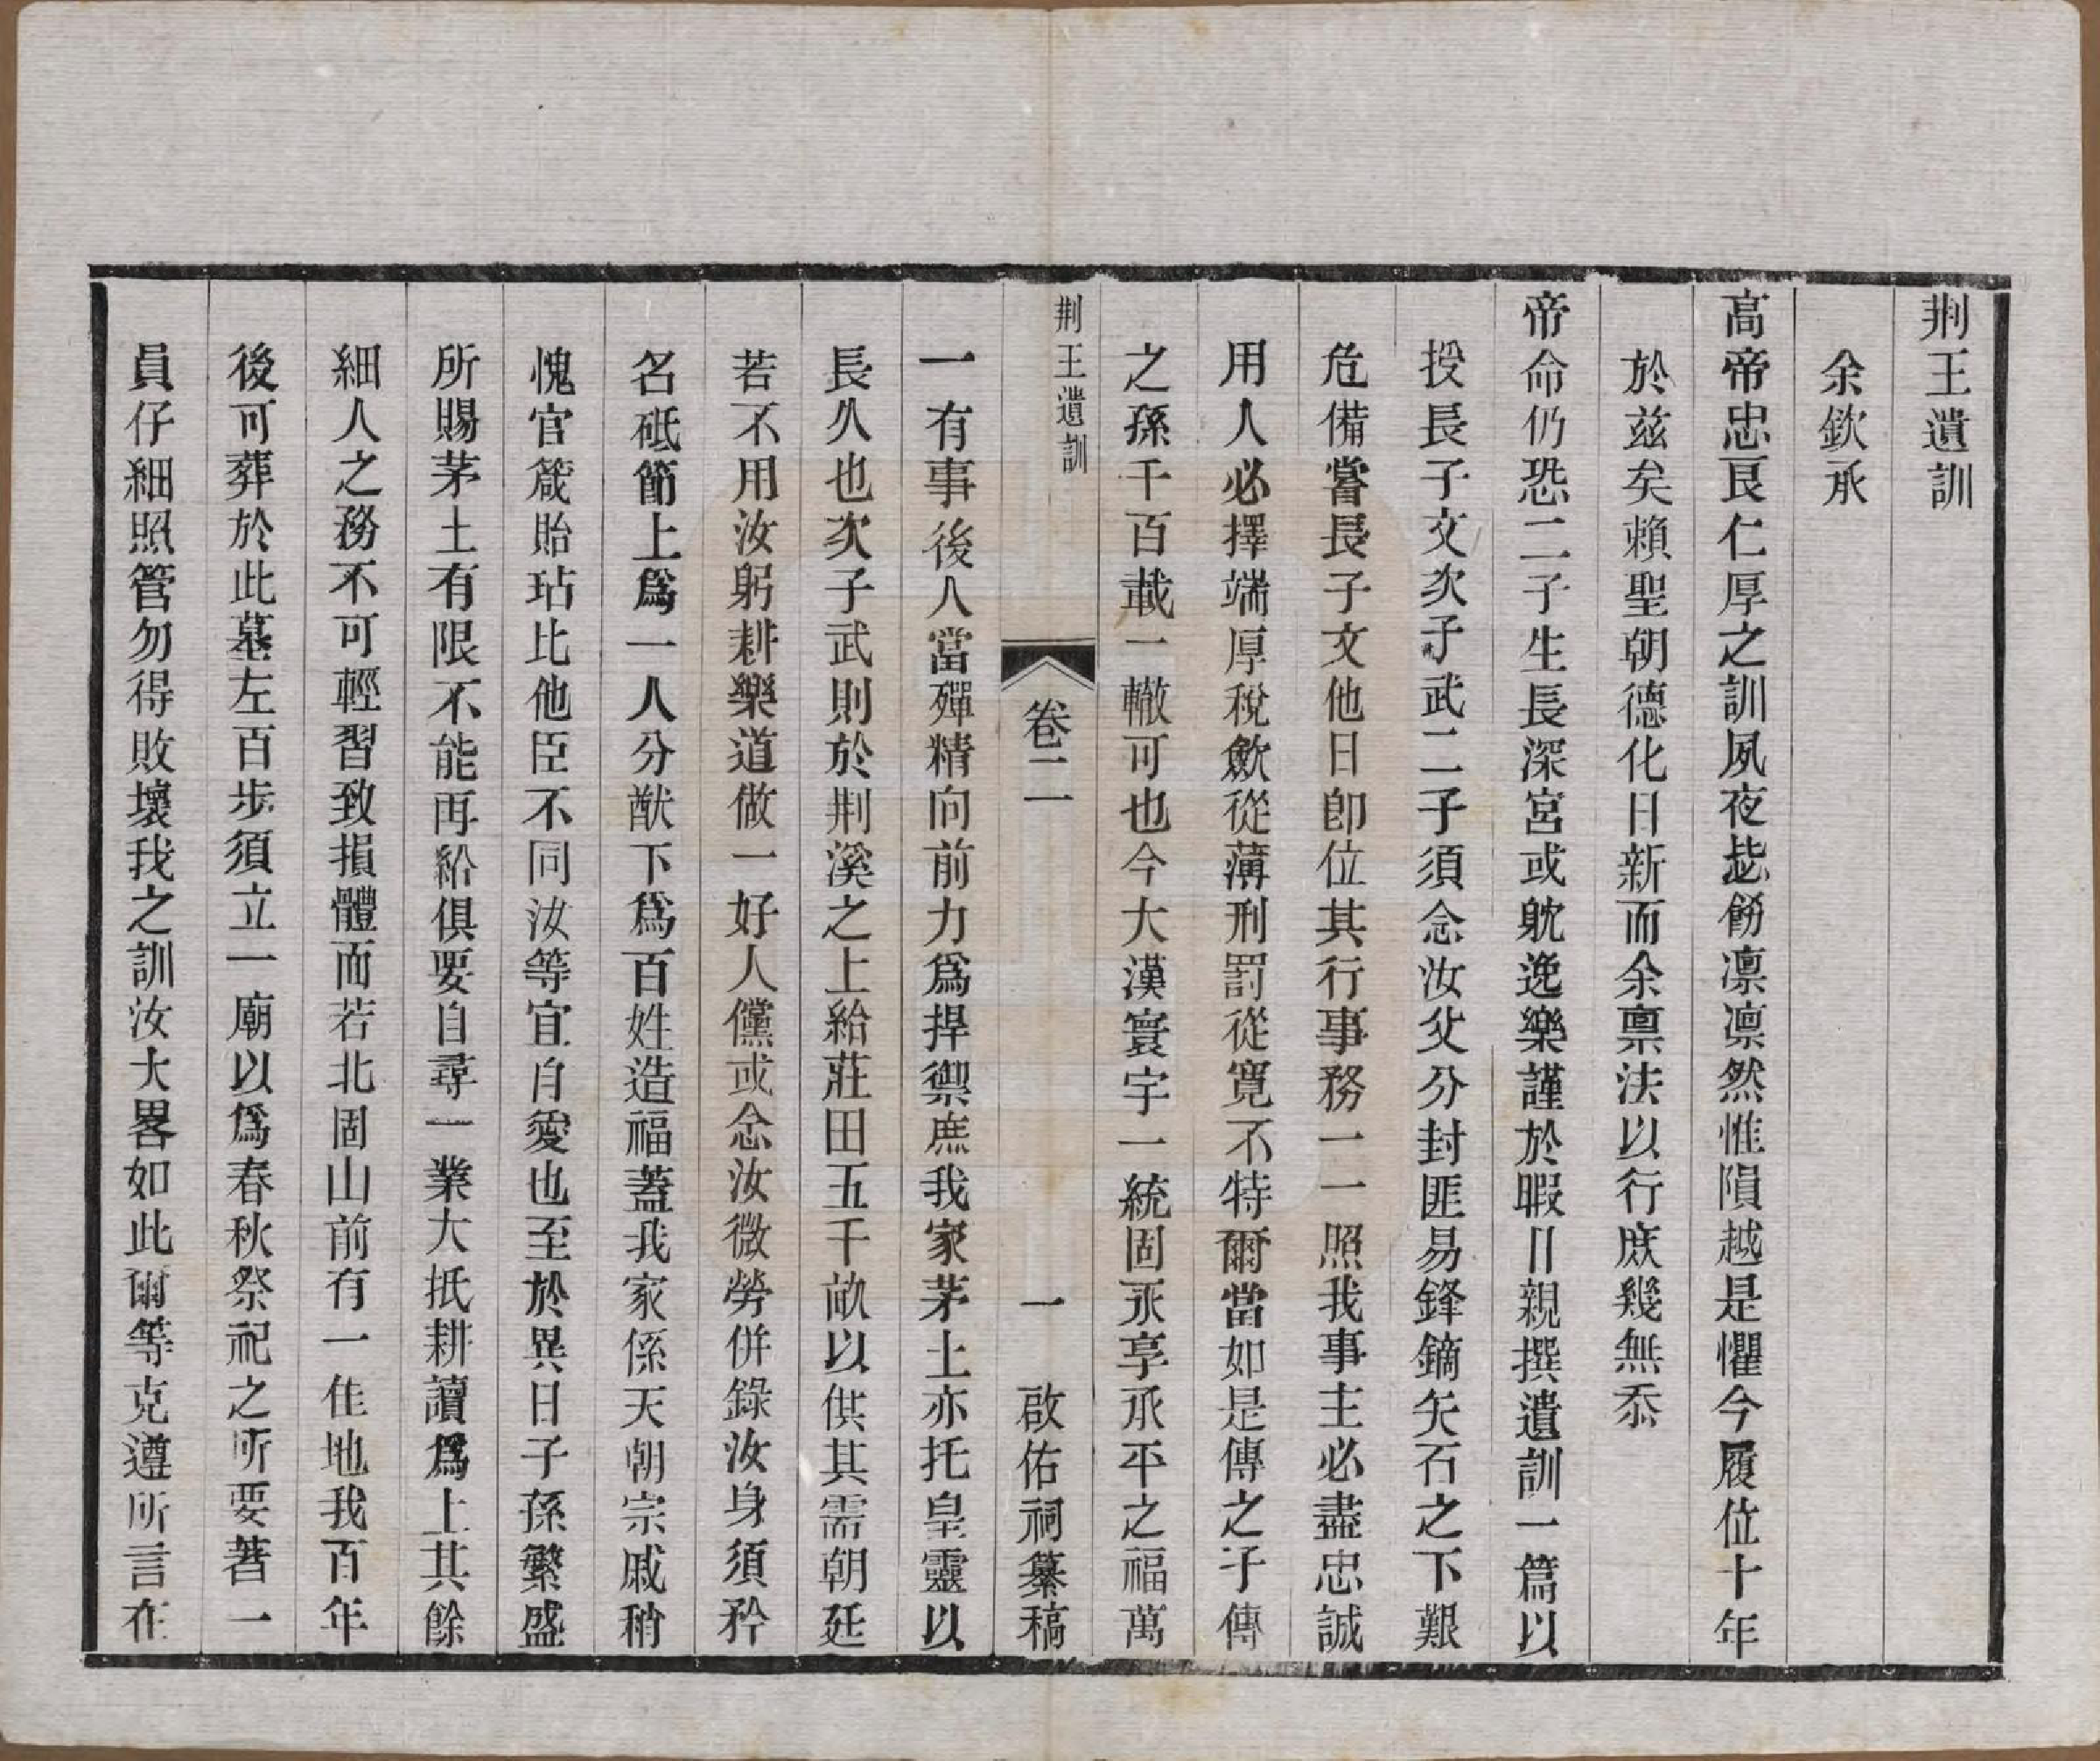 荆王遺訓
余欽承
高帝忠良仁厚之訓夙夜毖飭凛凛然惟隕越是懼今履位十年
於兹矣賴聖朝德化日新而余禀法以行庶幾無忝
帝命仍恐二子生長深宮或躭逸樂謹於暇日親撰遺訓一篇以
授長子文次子武二子須念汝父分封匪易鋒鏑矢石之下艱
危備嘗長子文他日卽位其行事務一一照我事主必盡忠誠
用人必擇端厚稅斂從薄刑罰從寬不特爾當如是傳之子傳
之孫千百載一轍可也今大漢寰宇一統固永享承平之福萬
荆王遺訓
卷二
一
啟佑祠纂稿
一有事後人當殫精向前力爲捍禦庶我家茅土亦托皇靈以
長久也次子武則於荆溪之上給莊田五千畝以供其需朝廷
若不用汝躬耕樂道做一好人儻或念汝微勞併錄汝身須矜
名砥節上爲一人分猷下爲百姓造福蓋我家係天朝宗戚稍
愧官箴貽玷比他臣不同汝等宜自愛也至於異日子孫繁盛
所賜茅土有限不能再給俱要自尋一業大抵耕讀爲上其餘
細人之務不可輕習致損體面若北固山前有一佳地我百年
後可葬於此墓左百步須立一廟以爲春秋祭祀之所要著一
員仔細照管勿得敗壞我之訓汝大畧如此爾等克遵所言在